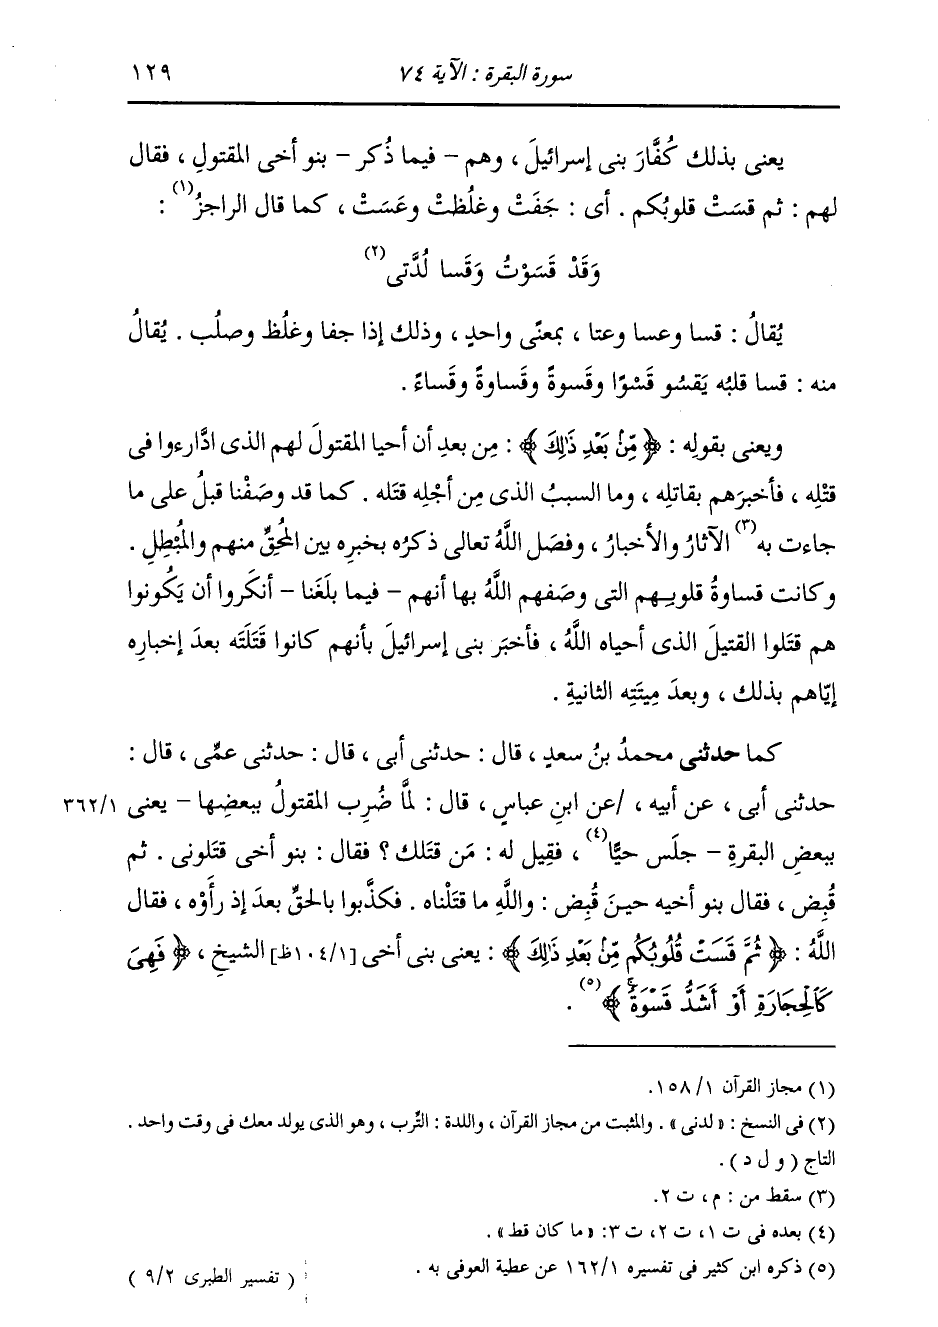 سورة البقرة : الآية ٧٤ ١٢٩
يعنى بذلك كُفَّارَ بنى إسرائيلَ ، وهم – فيما ذُكر – بنو أخى المقتولِ ، فقال
لهم : ثم قسَتْ قلوبُكم . أى : جَفَتْ وغلُظتْ وعَسَتْ ، كما قال الراجزُ(١) :
وَقَدْ قَسَوْتُ وَقَسا لُدَّتى(٢)
يُقالُ : قسا وعسا وعتا ، بمعنًى واحدٍ ، وذلك إذا جفا وغلُظ وصلُب . يُقالُ
منه : قسا قلبُه يَقسُو قَسْوًا وقَسوةً وقَساوةً وقَساءً .
ويعنى بقولِه : ﴿ مِّنۢ بَعْدِ ذَٰلِكَ ﴾ : مِن بعدِ أن أحيا المقتولَ لهم الذى ادَّارءوا فى
قتْلِه ، فأخبرَهم بقاتلِه ، وما السببُ الذى مِن أجْلِه قتَله . كما قد وصَفْنا قبلُ على ما
جاءت به(٣) الآثارُ والأخبارُ ، وفصَل اللَّهُ تعالى ذكرُه بخبرِه بين المُحِقِّ منهم والمُبْطِلِ .
وكانت قساوةُ قلوبِهم التى وصَفهم اللَّهُ بها أنهم – فيما بلَغَنا – أنكَروا أن يَكُونوا
هم قتَلوا القتيلَ الذى أحياه اللَّهُ ، فأخبَر بنى إسرائيلَ بأنهم كانوا قَتَلَتَه بعدَ إخبارِه
إيّاهم بذلك ، وبعدَ مِيتَتِه الثانيةِ .
كما حدثنى محمدُ بنُ سعدٍ ، قال : حدثنى أبى ، قال : حدثنى عمِّى ، قال :
حدثنى أبى ، عن أبيه ، /عن ابنِ عباسٍ ، قال : لمَّا ضُرِب المقتولُ ببعضِها – يعنى ٣٦٢/١
ببعضِ البقرةِ – جلَس حيًّا(٤) ، فقِيل له : مَن قتَلك ؟ فقال : بنو أخى قتَلونى . ثم
قُبِض ، فقال بنو أخيه حينَ قُبِض : واللَّهِ ما قتَلْناه . فكذَّبوا بالحقِّ بعدَ إذ رأَوْه ، فقال
اللَّهُ : ﴿ ثُمَّ قَسَتْ قُلُوبُكُم مِّنۢ بَعْدِ ذَٰلِكَ ﴾ : يعنى بنى أخى [١٠٤/١ظ] الشيخِ ، ﴿ فَهِىَ
كَٱلْحِجَارَةِ أَوْ أَشَدُّ قَسْوَةً ﴾(٥) .
(١) مجاز القرآن ١٥٨/١.
(٢) فى النسخ : «لدنى» . والمثبت من مجاز القرآن ، واللدة : التِّرب ، وهو الذى يولد معك فى وقت واحد .
التاج ( و ل د ) .
(٣) سقط من : م ، ت ٢.
(٤) بعده فى ت ١، ت ٢، ت ٣: «ما كان قط» .
(٥) ذكره ابن كثير فى تفسيره ١٦٢/١ عن عطية العوفى به .
( تفسير الطبرى ٩/٢ )